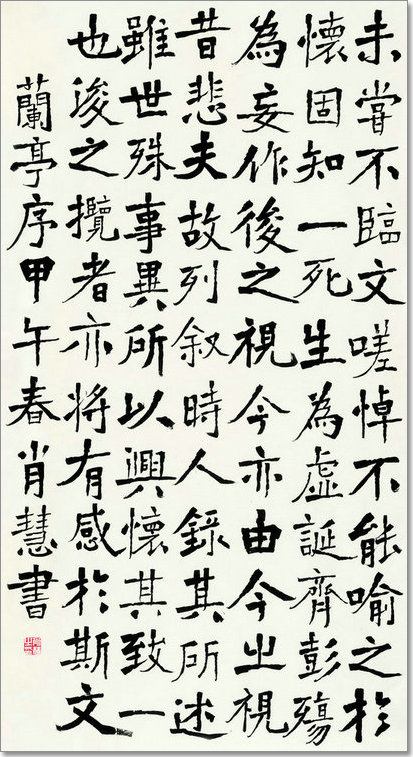 未嘗不臨文嗟悼不能喻之於
懷固知一死生為虛誕齊彭殤
為妄作後之視今亦由今之視
昔悲夫故列叙時人錄其所述
雖世殊事異所以興懷其致一
也後之攬者亦將有感於斯文
蘭亭序甲午春肖慧書